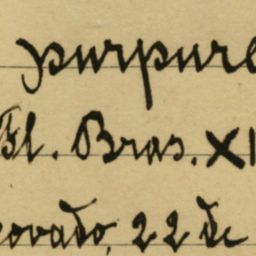 purpure
Fl. Bras. XI
covado, 22 de